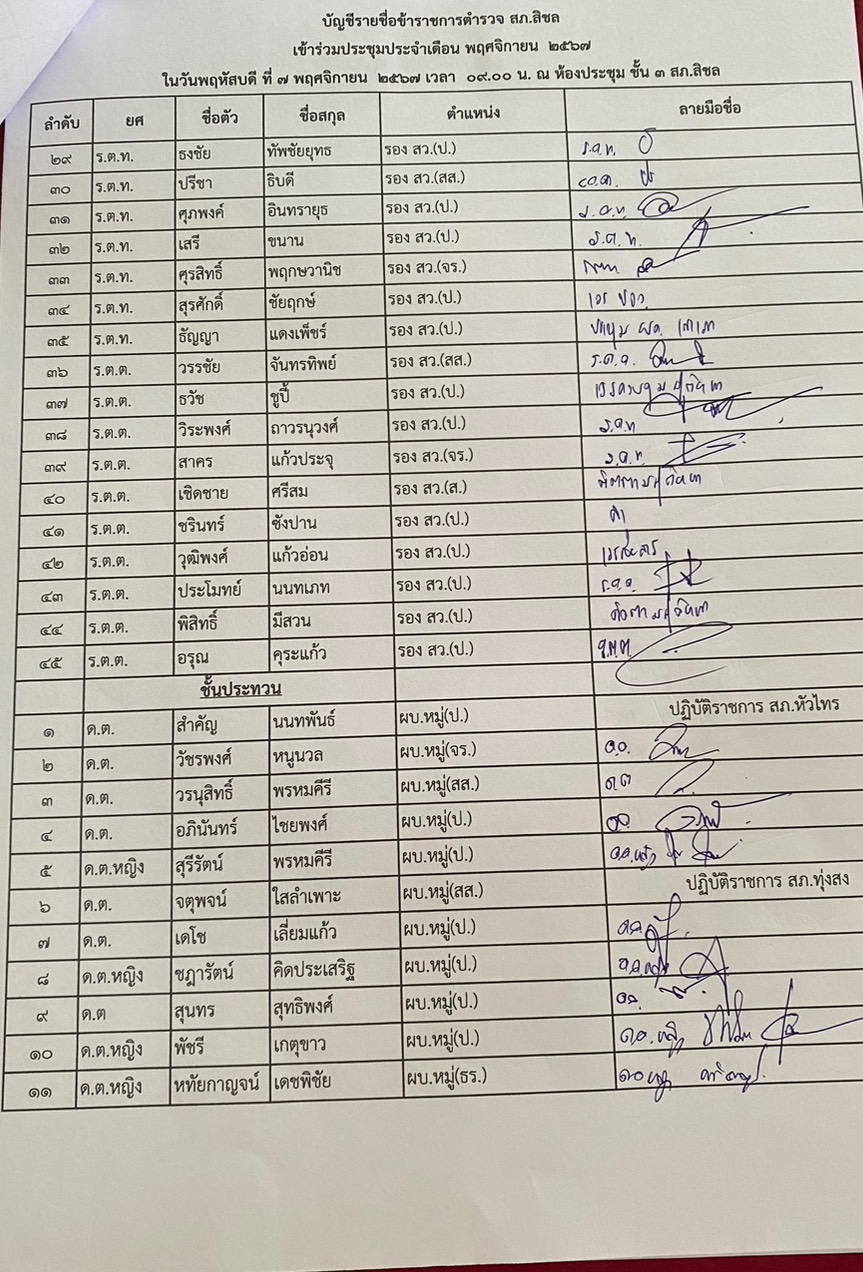 บัญชีรายชื่อข้าราชการตำรวจ สภ.สิชล
เข้าร่วมประชุมประจำเดือน พฤศจิกายน ๒๕๖๗
ในวันพฤหัสบดี ที่ ๗ พฤศจิกายน ๒๕๖๗ เวลา ๐๙.๐๐ น. ณ ห้องประชุม ชั้น ๓ สภ.สิชล
ลำดับ ยศ ชื่อตัว ชื่อสกุล ตำแหน่ง ลายมือชื่อ
๒๙ ร.ต.ท. ธงชัย ทัพชัยยุทธ รอง สว.(ป.) ร.ต.ท.
๓๐ ร.ต.ท. ปรีชา ธิบดี รอง สว.(สส.)
๓๑ ร.ต.ท. ศุภพงค์ อินทรายุธ รอง สว.(ป.) ร.ต.ท.
๓๒ ร.ต.ท. เสรี ขนาน รอง สว.(ป.) ร.ต.ท.
๓๓ ร.ต.ท. ศุรสิทธิ์ พฤกษวานิช รอง สว.(จร.)
๓๔ ร.ต.ท. สุรศักดิ์ ชัยฤกษ์ รอง สว.(ป.)
๓๕ ร.ต.ท. ธัญญา แดงเพ็ชร์ รอง สว.(ป.)
๓๖ ร.ต.ต. วรรชัย จันทรทิพย์ รอง สว.(สส.) ร.ต.ต.
๓๗ ร.ต.ต. ธวัช ชูปี้ รอง สว.(ป.)
๓๘ ร.ต.ต. วิระพงศ์ ถาวรนุวงศ์ รอง สว.(ป.) ร.ต.ท
๓๙ ร.ต.ต. สาคร แก้วประจุ รอง สว.(จร.) ร.ต.ท.
๔๐ ร.ต.ต. เชิดชาย ศรีสม รอง สว.(ส.)
๔๑ ร.ต.ต. ชรินทร์ ซังปาน รอง สว.(ป.)
๔๒ ร.ต.ต. วุฒิพงศ์ แก้วอ่อน รอง สว.(ป.)
๔๓ ร.ต.ต. ประโมทย์ นนทเภท รอง สว.(ป.) ร.ต.ต.
๔๔ ร.ต.ต. พิสิทธิ์ มีสวน รอง สว.(ป.)
๔๕ ร.ต.ต. อรุณ คุระแก้ว รอง สว.(ป.)
ชั้นประทวน
๑ ด.ต. สำคัญ นนทพันธ์ ผบ.หมู่(ป.) ปฏิบัติราชการ สภ.หัวไทร
๒ ด.ต. วัชรพงศ์ หนูนวล ผบ.หมู่(จร.) ด.ต.
๓ ด.ต. วรนุสิทธิ์ พรหมคีรี ผบ.หมู่(สส.) ด.ต
๔ ด.ต. อภินันทร์ ไชยพงศ์ ผบ.หมู่(ป.) ดต.
๕ ด.ต.หญิง สุรีรัตน์ พรหมคีรี ผบ.หมู่(ป.) ด.ต.หญิง
๖ ด.ต. จตุพจน์ ใสลำเพาะ ผบ.หมู่(สส.) ปฏิบัติราชการ สภ.ทุ่งสง
๗ ด.ต. เดโช เลี่ยมแก้ว ผบ.หมู่(ป.) ด.ต.
๘ ด.ต.หญิง ชฎารัตน์ คิดประเสริฐ ผบ.หมู่(ป.) ด.ต.หญิง
๙ ด.ต สุนทร สุทธิพงศ์ ผบ.หมู่(ป.) ดต.
๑๐ ด.ต.หญิง พัชรี เกตุขาว ผบ.หมู่(ป.) ด.ต.หญิง
๑๑ ด.ต.หญิง หทัยกาญจน์ เดชพิชัย ผบ.หมู่(ธร.) ด.ต.หญิง